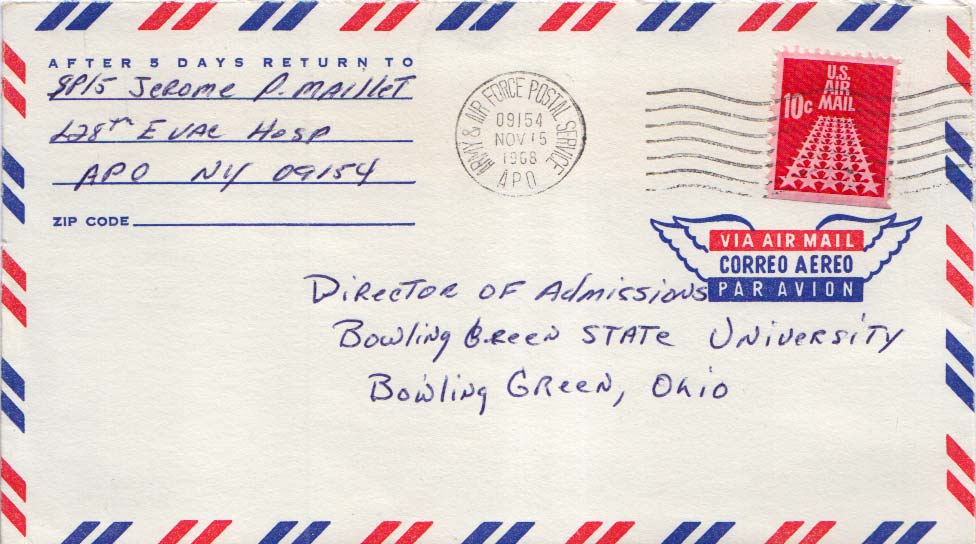 AFTER 5 DAYS RETURN TO
SP/5 Jerome P. Maillet
128th Evac Hosp
APO NY 09154
ZIP CODE
ARMY & AIR FORCE POSTAL SERVICE
09154
NOV 15
1968
APO
U.S.
AIR
10c MAIL
VIA AIR MAIL
CORREO AEREO
PAR AVION
Director of Admissions
Bowling Green State University
Bowling Green, Ohio